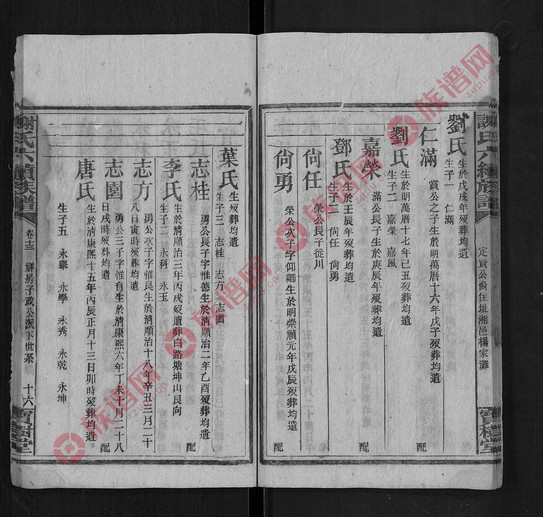 謝氏六續族譜
定寅公裔住址湘邑楊家灘
寶樹堂
劉氏 生於戊戌年歿葬均遺
生子一 仁滿
仁滿 賞公之子生於明萬曆十六年戊子歿葬均遺
配
劉氏 生於明萬曆十七年己丑歿葬均遺
生子二 嘉榮 嘉風
嘉榮 滿公長子生於庚辰年歿葬均遺
配
鄧氏 生於壬辰年歿葬均遺
生子二 尙任 尙勇
尙任 榮公長子從川
尙勇 榮公次子字仰聰生於明崇禎元年戊辰歿葬均遺
配
葉氏 生歿葬均遺
生子三 志桂 志方 志圖
志桂 勇公長子字惟德生於清順治二年乙酉歿葬均遺
配
李氏 生於清順治三年丙戌歿遺葬白路塘坤山艮向
生子二 永科 永玉
志方 勇公次子字惟良生於清順治十八年辛丑三月二十
八日寅時歿葬均遺
志圖 勇公三子字惟自生於清康熙六年丁未十月二十八
日戌時歿葬均遺
配
唐氏 生於清康熙十五年丙辰正月十三日卯時歿葬均遺
生子五 永舉 永學 永秀 永乾 永坤
謝氏六續族譜
卷十三
祥房子政公派下世系
十六
寶樹堂
族谱网